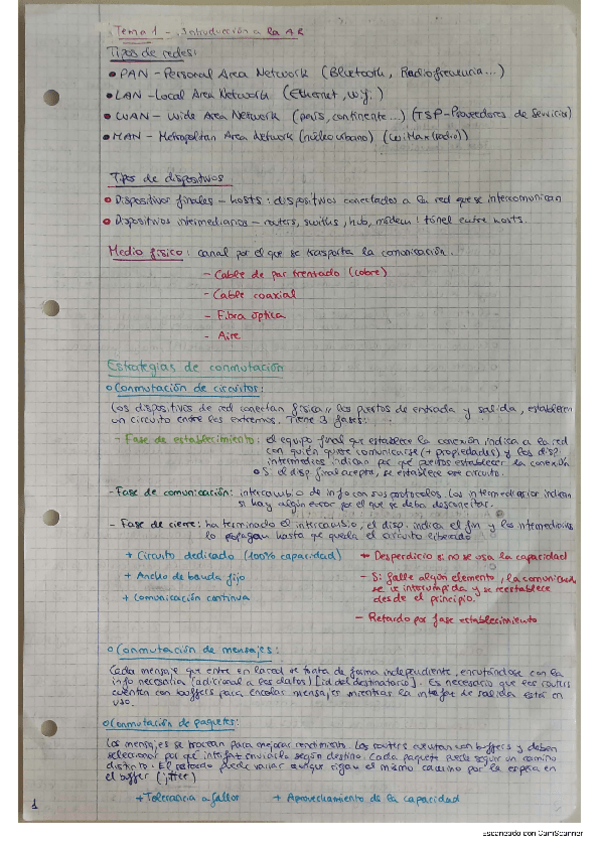 Tema 1 - Introducción a la AR
Tipos de redes:
• PAN - Personal Area Network (Bluetooth, Radiofrecuencia...)
• LAN - Local Area Network (Ethernet, wifi)
• WAN - Wide Area Network (país, continente...) (TSP-Proveedores de Servicios)
• MAN - Metropolitan Area Network (núcleo urbano) (WiMax (radio))
Tipos de dispositivos
• Dispositivos finales - hosts: dispositivos conectados a la red que se intercomunican
• Dispositivos intermediarios - routers, hub, módem: túnel entre hosts.
Medio físico: canal por el que se trasporta la comunicación.
- Cable de par trentado (cobre)
- Cable coaxial
- Fibra óptica
- Aire
Estrategias de conmutación
o Conmutación de circuitos:
Los dispositivos de red conectan física// los puertos de entrada y salida, establecen
un circuito entre los extremos. Tiene 3 fases:
- Fase de establecimiento: el equipo final que establece la conexión indica a la red
con quién quiere comunicarse (+ propiedades) y los disp.
intermedios indican por qué puertos establecer la conexión.
o Si el disp final acepta, se establece ese circuito.
- Fase de comunicación: intercambio de info con sus protocolos. Los intermediarios indican
si hay algún error por el que se deba desconectar.
- Fase de cierre: ha terminado el intercambio, el disp. indica el fin y los intermediarios
lo propagan hasta que queda el circuito liberado
+ Circuito dedicado (100% capacidad)
- Desperdicio si no se usa la capacidad
+ Ancho de banda fijo
- Si falla algún elemento, la comunicac.
se ve interrumpida y se reestablece
desde el principio.
+ Comunicación continua
- Retardo por fase establecimiento
o Conmutación de mensajes:
Cada mensaje que entre en la red se trata de forma independiente, enrutándose con la
info necesaria (adicional a los datos) [id del destinatario]. Es necesario que los routers
cuenten con buffers para encolar mensajes mientras la interfaz de salida está en
uso.
o Conmutación de paquetes:
Los mensajes se trocean para mejorar rendimiento. Los routers cuentan con buffers y deben
seleccionar por qué interfaz enviarlo según destino. Cada paquete puede seguir un camino
distinto. El retardo puede variar aunque sigan el mismo camino por la espera en
el buffer (jitter)
+ Tolerancia a fallos + Aprovechamiento de la capacidad
1
Escaneado con CamScanner